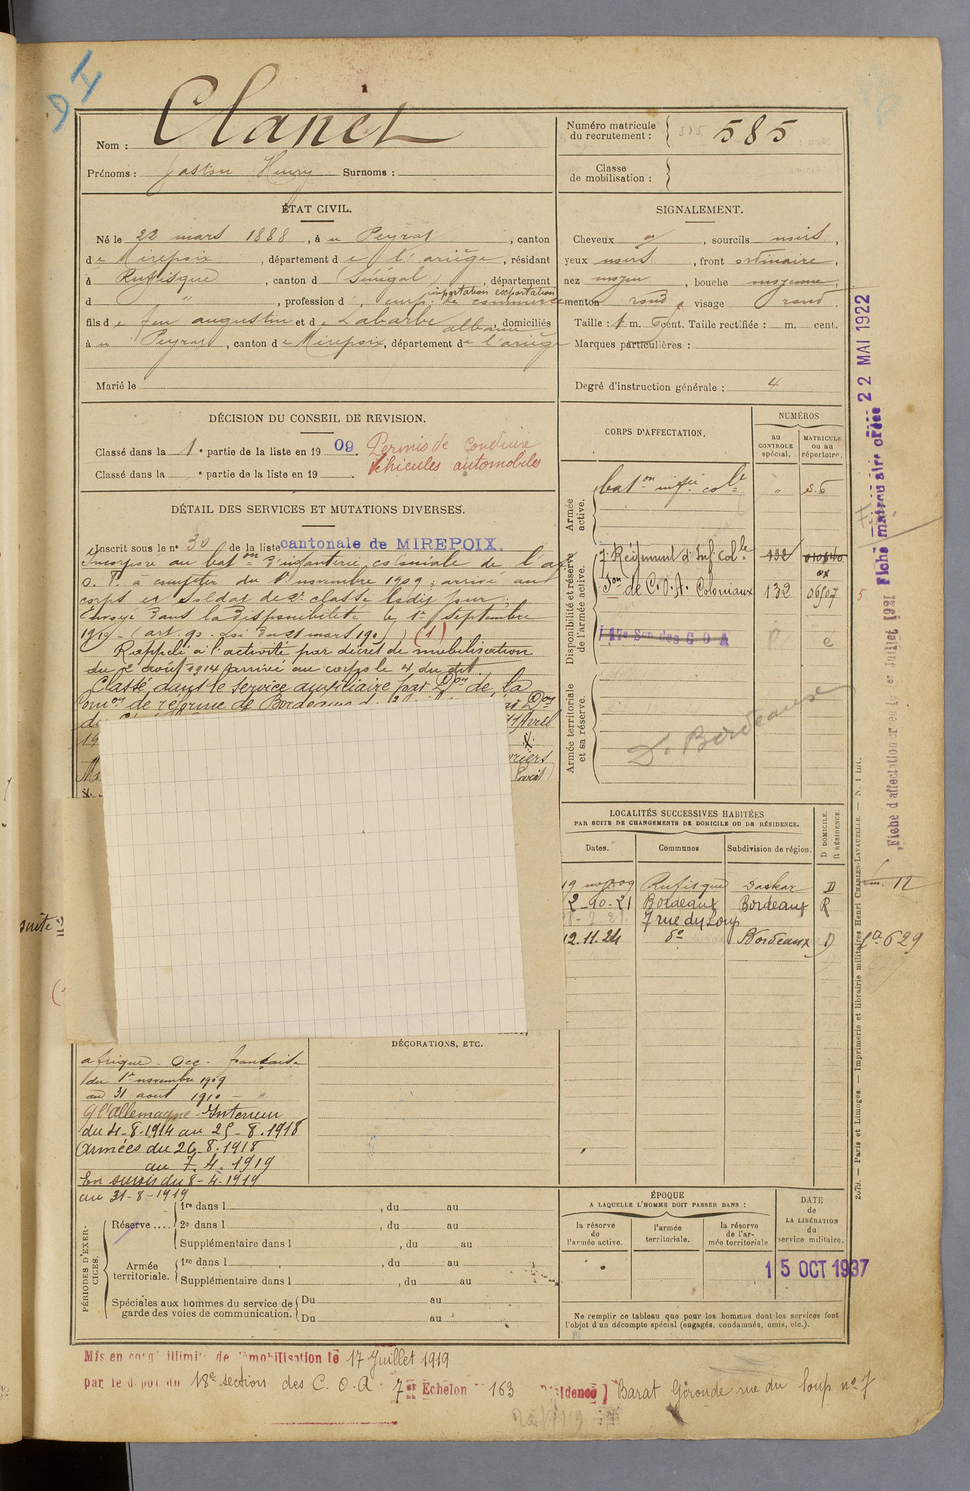 Nom : Clanet
Prénoms : Gaston Henry Surnoms :
Numéro matricule du recrutement : 585
Classe de mobilisation :
ÉTAT CIVIL.
Né le 22 mars 1888, à Peyrat, canton
de Mirepoix, département de l'ariège, résidant
à Rufisque, canton d (Sénégal), département
d " , profession d' emp. de commerce
importation exportation
fils de feu augustin et de Labarbe albanie, domiciliés
à Peyrat, canton de Mirepoix, département de l'ariège
Marié le
SIGNALEMENT.
Cheveux , sourcils noirs,
yeux noirs, front ordinaire,
nez moyen, bouche moyenne,
menton rond, visage rond.
Taille : 1 m. cent. Taille rectifiée : m. cent.
Marques particulières :
Degré d'instruction générale : 4
DÉCISION DU CONSEIL DE REVISION.
Classé dans la 1e partie de la liste en 1909.
Classé dans la e partie de la liste en 19
Permis de conduire
véhicules automobiles
DÉTAIL DES SERVICES ET MUTATIONS DIVERSES.
Inscrit sous le n° 30 de la liste cantonale de MIREPOIX.
Incorporé au baton d'infanterie coloniale de l'a
o. f. à compter du 1er novembre 1909, arrivé au
corps et soldat de 2e classe ledit jour.
Envoyé dans la disponibilité le 1er septembre
1910 - (art. 90. Loi du 21 mars 1905) (1)
Rappelé à l'activité par décret de mobilisation
du 2 août 1914 arrivé au corps le 4 du dit
Classé dans le service auxiliaire par Don de la
Comon de réforme de Bordeaux d
CORPS D'AFFECTATION.
NUMÉROS
au CONTROLE spécial.
MATRICULE ou au répertoire.
Armée active.
baton inf.ie cole " s.6
Disponibilité et réserve de l'armée active.
7e Régiment d'Inf Cole 132
Son de C.O.A. Coloniaux 132 06507
17e Son des C O A
Armée territoriale et sa réserve.
Do Bordeaux
LOCALITÉS SUCCESSIVES HABITÉES
PAR SUITE DE CHANGEMENTS DE DOMICILE OU DE RÉSIDENCE.
Dates. Communes Subdivision de région. D DOMICILE. R RÉSIDENCE.
19 nov 09 Rufisque Dakar D
2-90-21 Bordeaux Bordeaux R
7 rue du Loup
12.11.24 do Bordeaux D
suite
DÉCORATIONS, ETC.
afrique Occ. française
du 1er novembre 1909
au 31 aout 1910
C/ l'Allemagne - Intérieur
du 4-8-1914 au 25-8-1918
Armées du 26-8-1918
au 7.4.1919
En sursis du 8-4-1919
au 31-8-1919
PÉRIODES D'EXERCICES.
Réserve .... 1re dans l , du au
2e dans l , du au
Supplémentaire dans l , du au
Armée territoriale. 1re dans l , du au
Supplémentaire dans l , du au
Spéciales aux hommes du service de garde des voies de communication. Du au
Du au
ÉPOQUE
A LAQUELLE L'HOMME DOIT PASSER DANS :
la réserve de l'armée active.
l'armée territoriale.
la réserve de l'armée territoriale
DATE de LA LIBÉRATION du service militaire.
15 OCT 1937
Ne remplir ce tableau que pour les hommes dont les services font
l'objet d'un décompte spécial (engagés, condamnés, omis, etc.).
Mis en congé illimité de démobilisation le 17 Juillet 1919
par le dépôt du 18e section des C.O.A. 7e Echelon 163 Résidence Barat Gironde rue du loup no 7
Fiche matriculaire créée 22 MAI 1922
Fiche d'affectation créée le 1er Juillet 1921
12
629
2079. — Paris et Limoges. — Imprimerie et librairie militaires Henri CHARLES-LAVAUZELLE. — N. 1 Int.